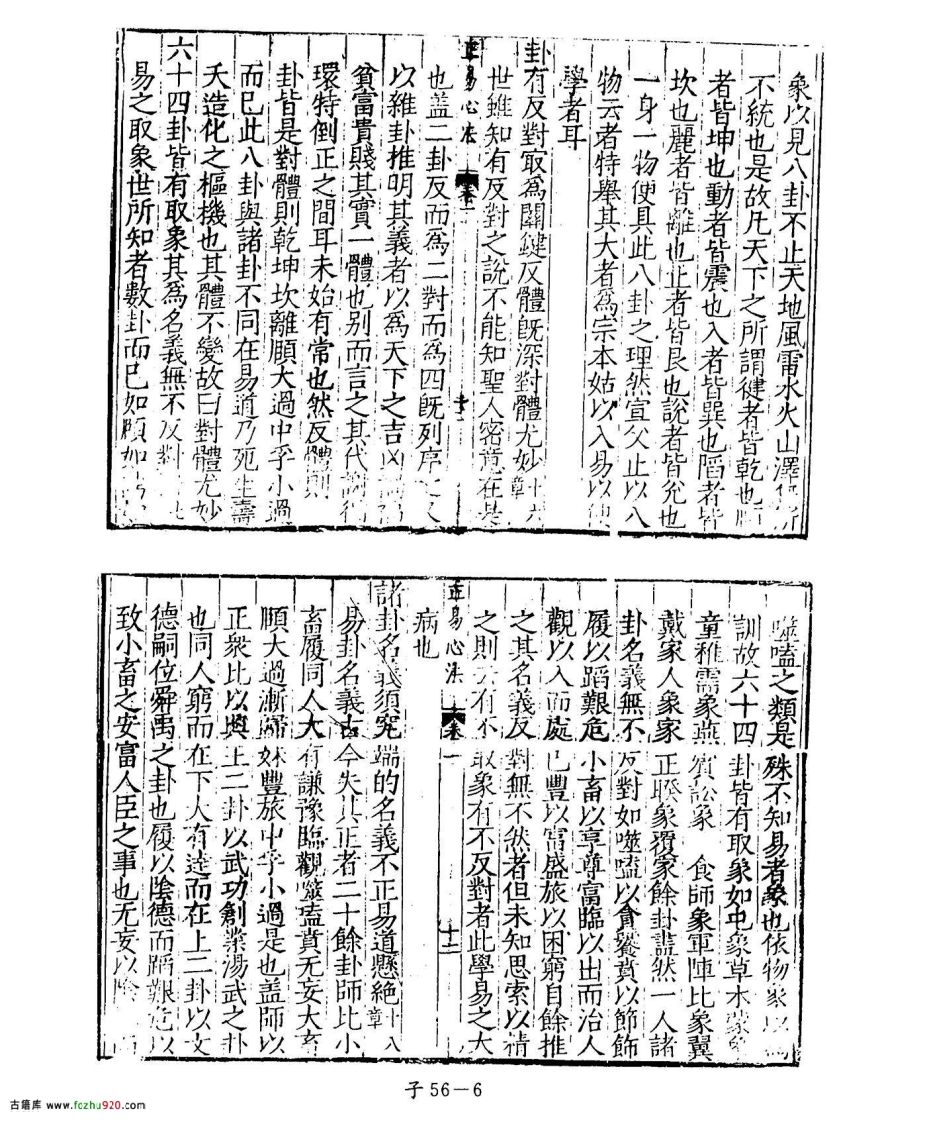 象以見八卦不止天地風雷水火山澤
不統也是故凡天下之所謂健者皆乾也順
者皆坤也動者皆震也入者皆巽也陷者皆
坎也麗者皆離也止者皆艮也說者皆兌也
一身一物便具此八卦之理然宣父止以八
物云者特舉其大者為宗本姑以入易以便
學者耳
卦有反對最為關鍵反體旣深對體尤妙十六章
世雖知有反對之說不能知聖人密意在是
正易心法 卷一 十一
也盖二卦反而為二對而為四旣列序之又
以雜卦推明其義者以為天下之吉凶
貧富貴賤其實一體也别而言之其代謝循
環特倒正之間耳未始有常也然反體則
卦皆是對體則乾坤坎離頤大過中孚小過
而已此八卦與諸卦不同在易道乃死生壽
夭造化之樞機也其體不變故曰對體尤妙
六十四卦皆有取象其為名義無不反對
易之取象世所知者數卦而已如頤如
噬嗑之類是殊不知易者象也依物象以為
訓故六十四卦皆有取象如屯象草木蒙象
童稚需象燕賓訟象 食師象軍陣比象翼
戴家人象家正睽象覆家餘卦盡然一人諸
卦名義無不反對如噬嗑以貪饕賁以節飾
履以蹈艱危小畜以享尊富臨以出而治人
觀以入而處已豐以富盛旅以困窮自餘推
之其名義反對無不然者但未知思索以精
之則又有不取象有不反對者此學易之大
正易心法 卷一 十二
病也
諸卦名義須究端的名義不正易道懸絶十八章
易卦名義古今失其正者二十餘卦師比小
畜履同人大有謙豫臨觀噬嗑賁无妄大畜
頤大過漸歸妹豐旅中孚小過是也盖師以
正衆比以興王二卦以武功創業湯武之卦
也同人窮而在下大有達而在上二卦以文
德嗣位舜禹之卦也履以陰德而蹈艱危以
致小畜之安富人臣之事也无妄以陰
子56－6
古籍库 www.fozhu920.com